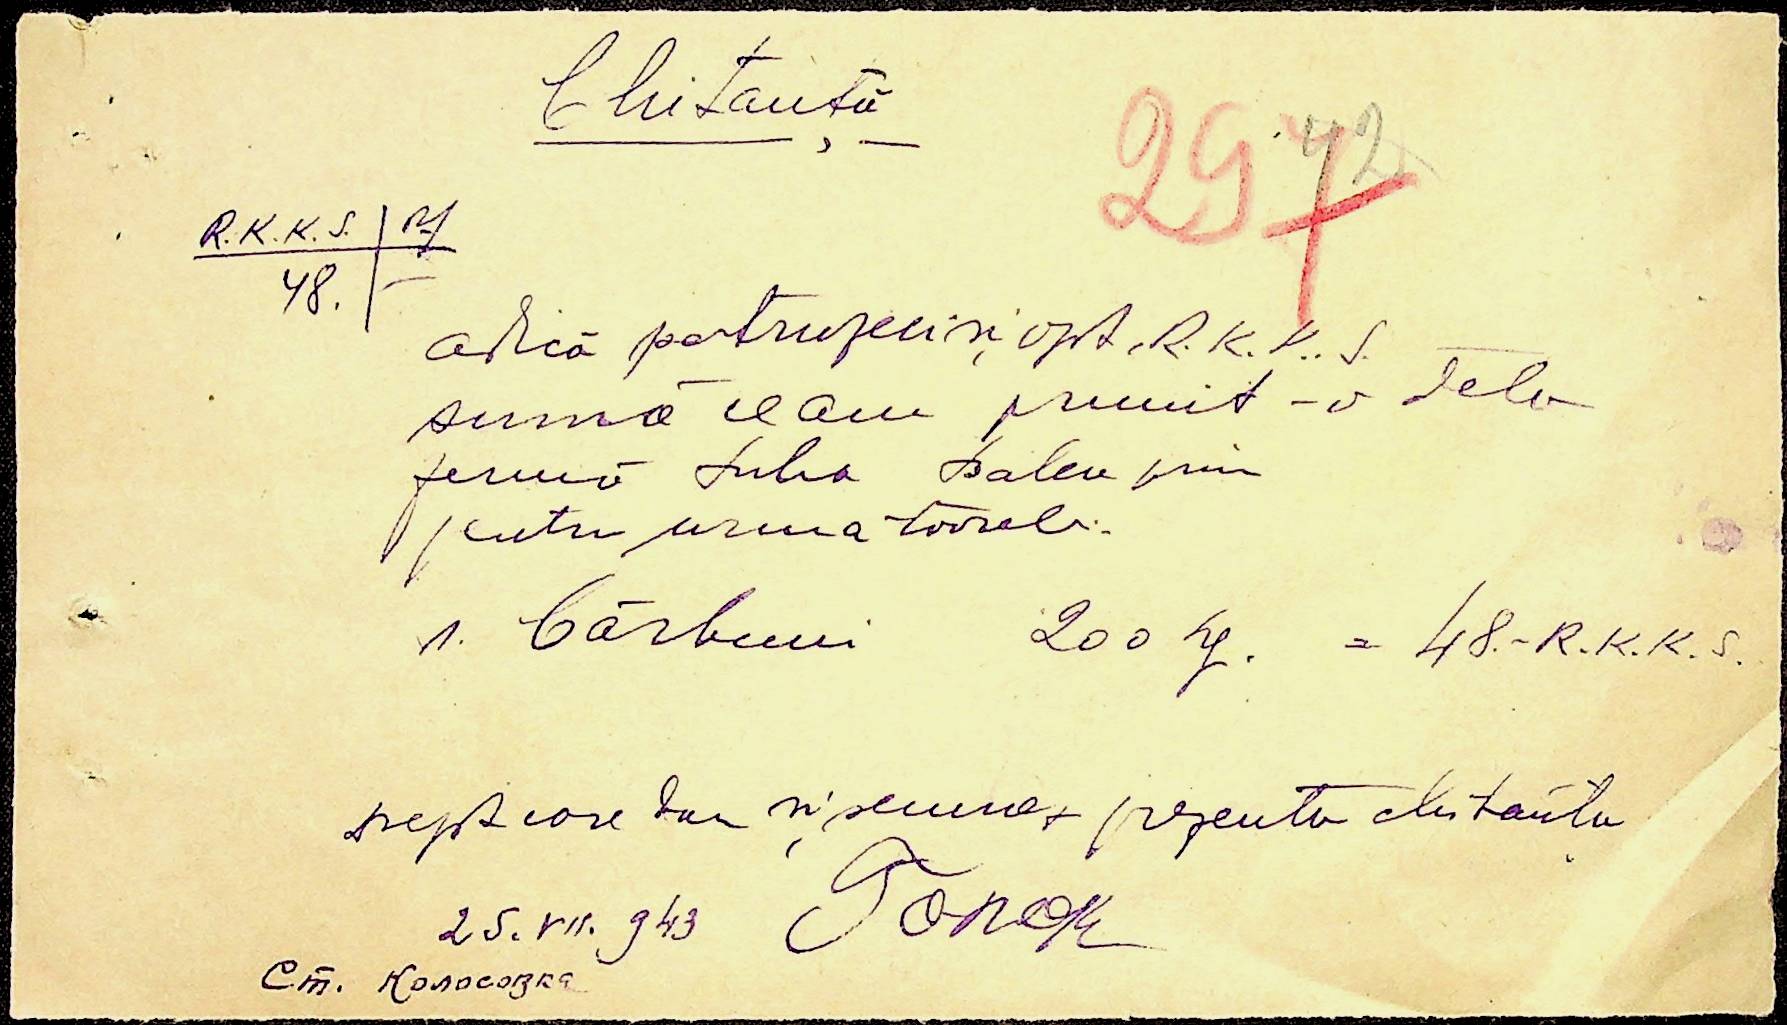 Chitanță
29 42
R.K.K.S.
48. –
adică patruzeci și opt R.K.K.S.
sumă ce am primit-o dela
firmă prin
pentru următoarele:
1. Cărbuni 200 kg. = 48.- R.K.K.S.
drept care dau și semnez prezenta chitanță
25.VII.943
Ст. Колосовка